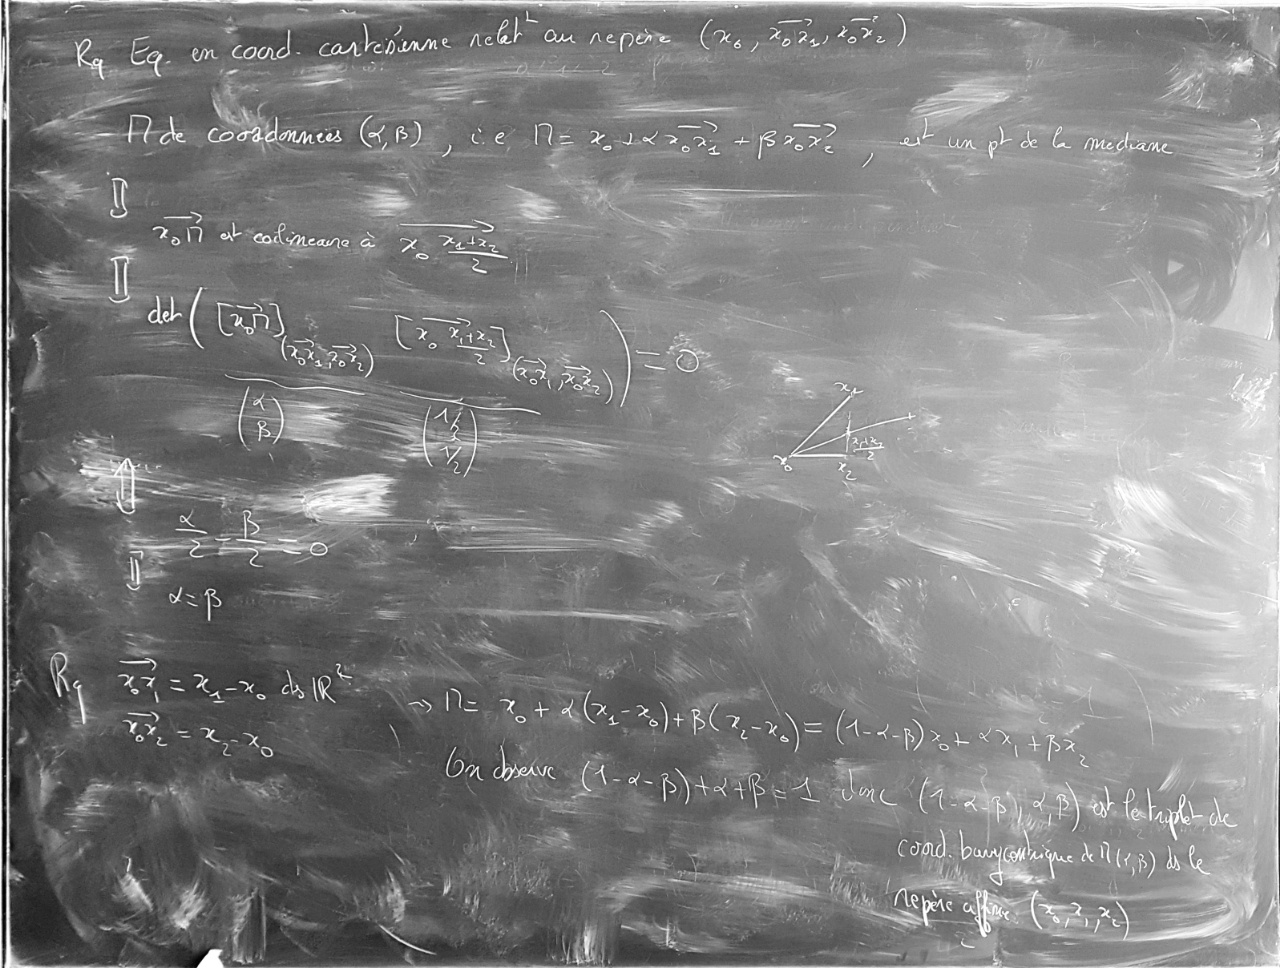 Rq Eq. en coord. cartésienne relatᵗ au repère (x₀, \overrightarrow{x₀x₁}, \overrightarrow{x₀x₂})
M de coordonnées (α, β), i.e M = x₀ + α \overrightarrow{x₀x₁} + β \overrightarrow{x₀x₂}, est un pt de la mediane
⇕
\overrightarrow{x₀M} est colineaire à \overrightarrow{x₀ \frac{x₁+x₂}{2}}
⇕
det ( [\overrightarrow{x₀M}]_{(\overrightarrow{x₀x₁}, \overrightarrow{x₀x₂})} [\overrightarrow{x₀ \frac{x₁+x₂}{2}}]_{(\overrightarrow{x₀x₁}, \overrightarrow{x₀x₂})} ) = 0
(α β) (1/2 1/2)
x₁
x₀ \frac{x₁+x₂}{2}
x₂
⇕
\frac{α}{2} - \frac{β}{2} = 0
⇕
α = β
Rq \overrightarrow{x₀x₁} = x₁ - x₀ ds ℝ²
\overrightarrow{x₀x₂} = x₂ - x₀
→ M = x₀ + α(x₁ - x₀) + β(x₂ - x₀) = (1-α-β) x₀ + αx₁ + βx₂
On observe (1-α-β) + α + β = 1 donc (1-α-β, α, β) est le triplet de
coord. barycentrique de M(α, β) ds le
repère affine (x₀, x₁, x₂)